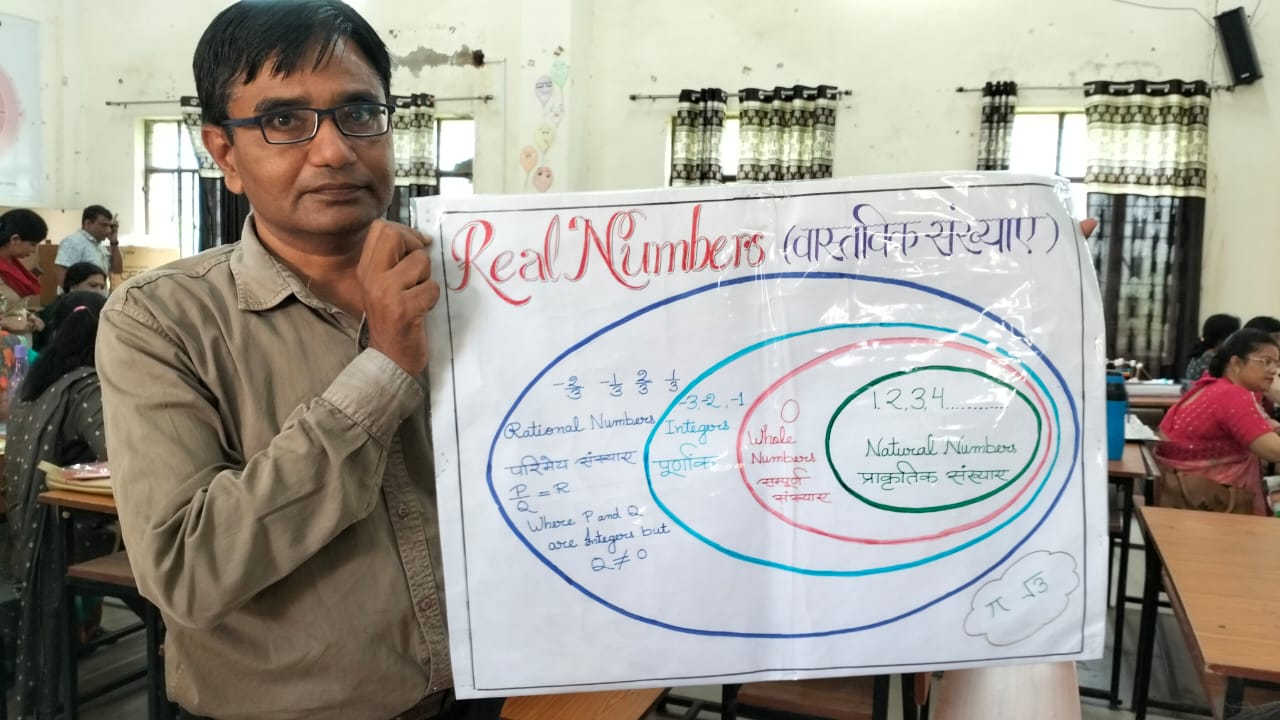 Real Numbers (वास्तविक संख्याए)
-2/3 -1/3 2/3 1/3
Rational Numbers
परिमेय संख्याए
P/Q = R
Where P and Q
are Integers but
Q ≠ 0
-3,-2,-1
Integers
पूर्णांक
0
Whole
Numbers
सम्पूर्ण
संख्याए
1,2,3,4............
Natural Numbers
प्राकृतिक संख्याए
π √3